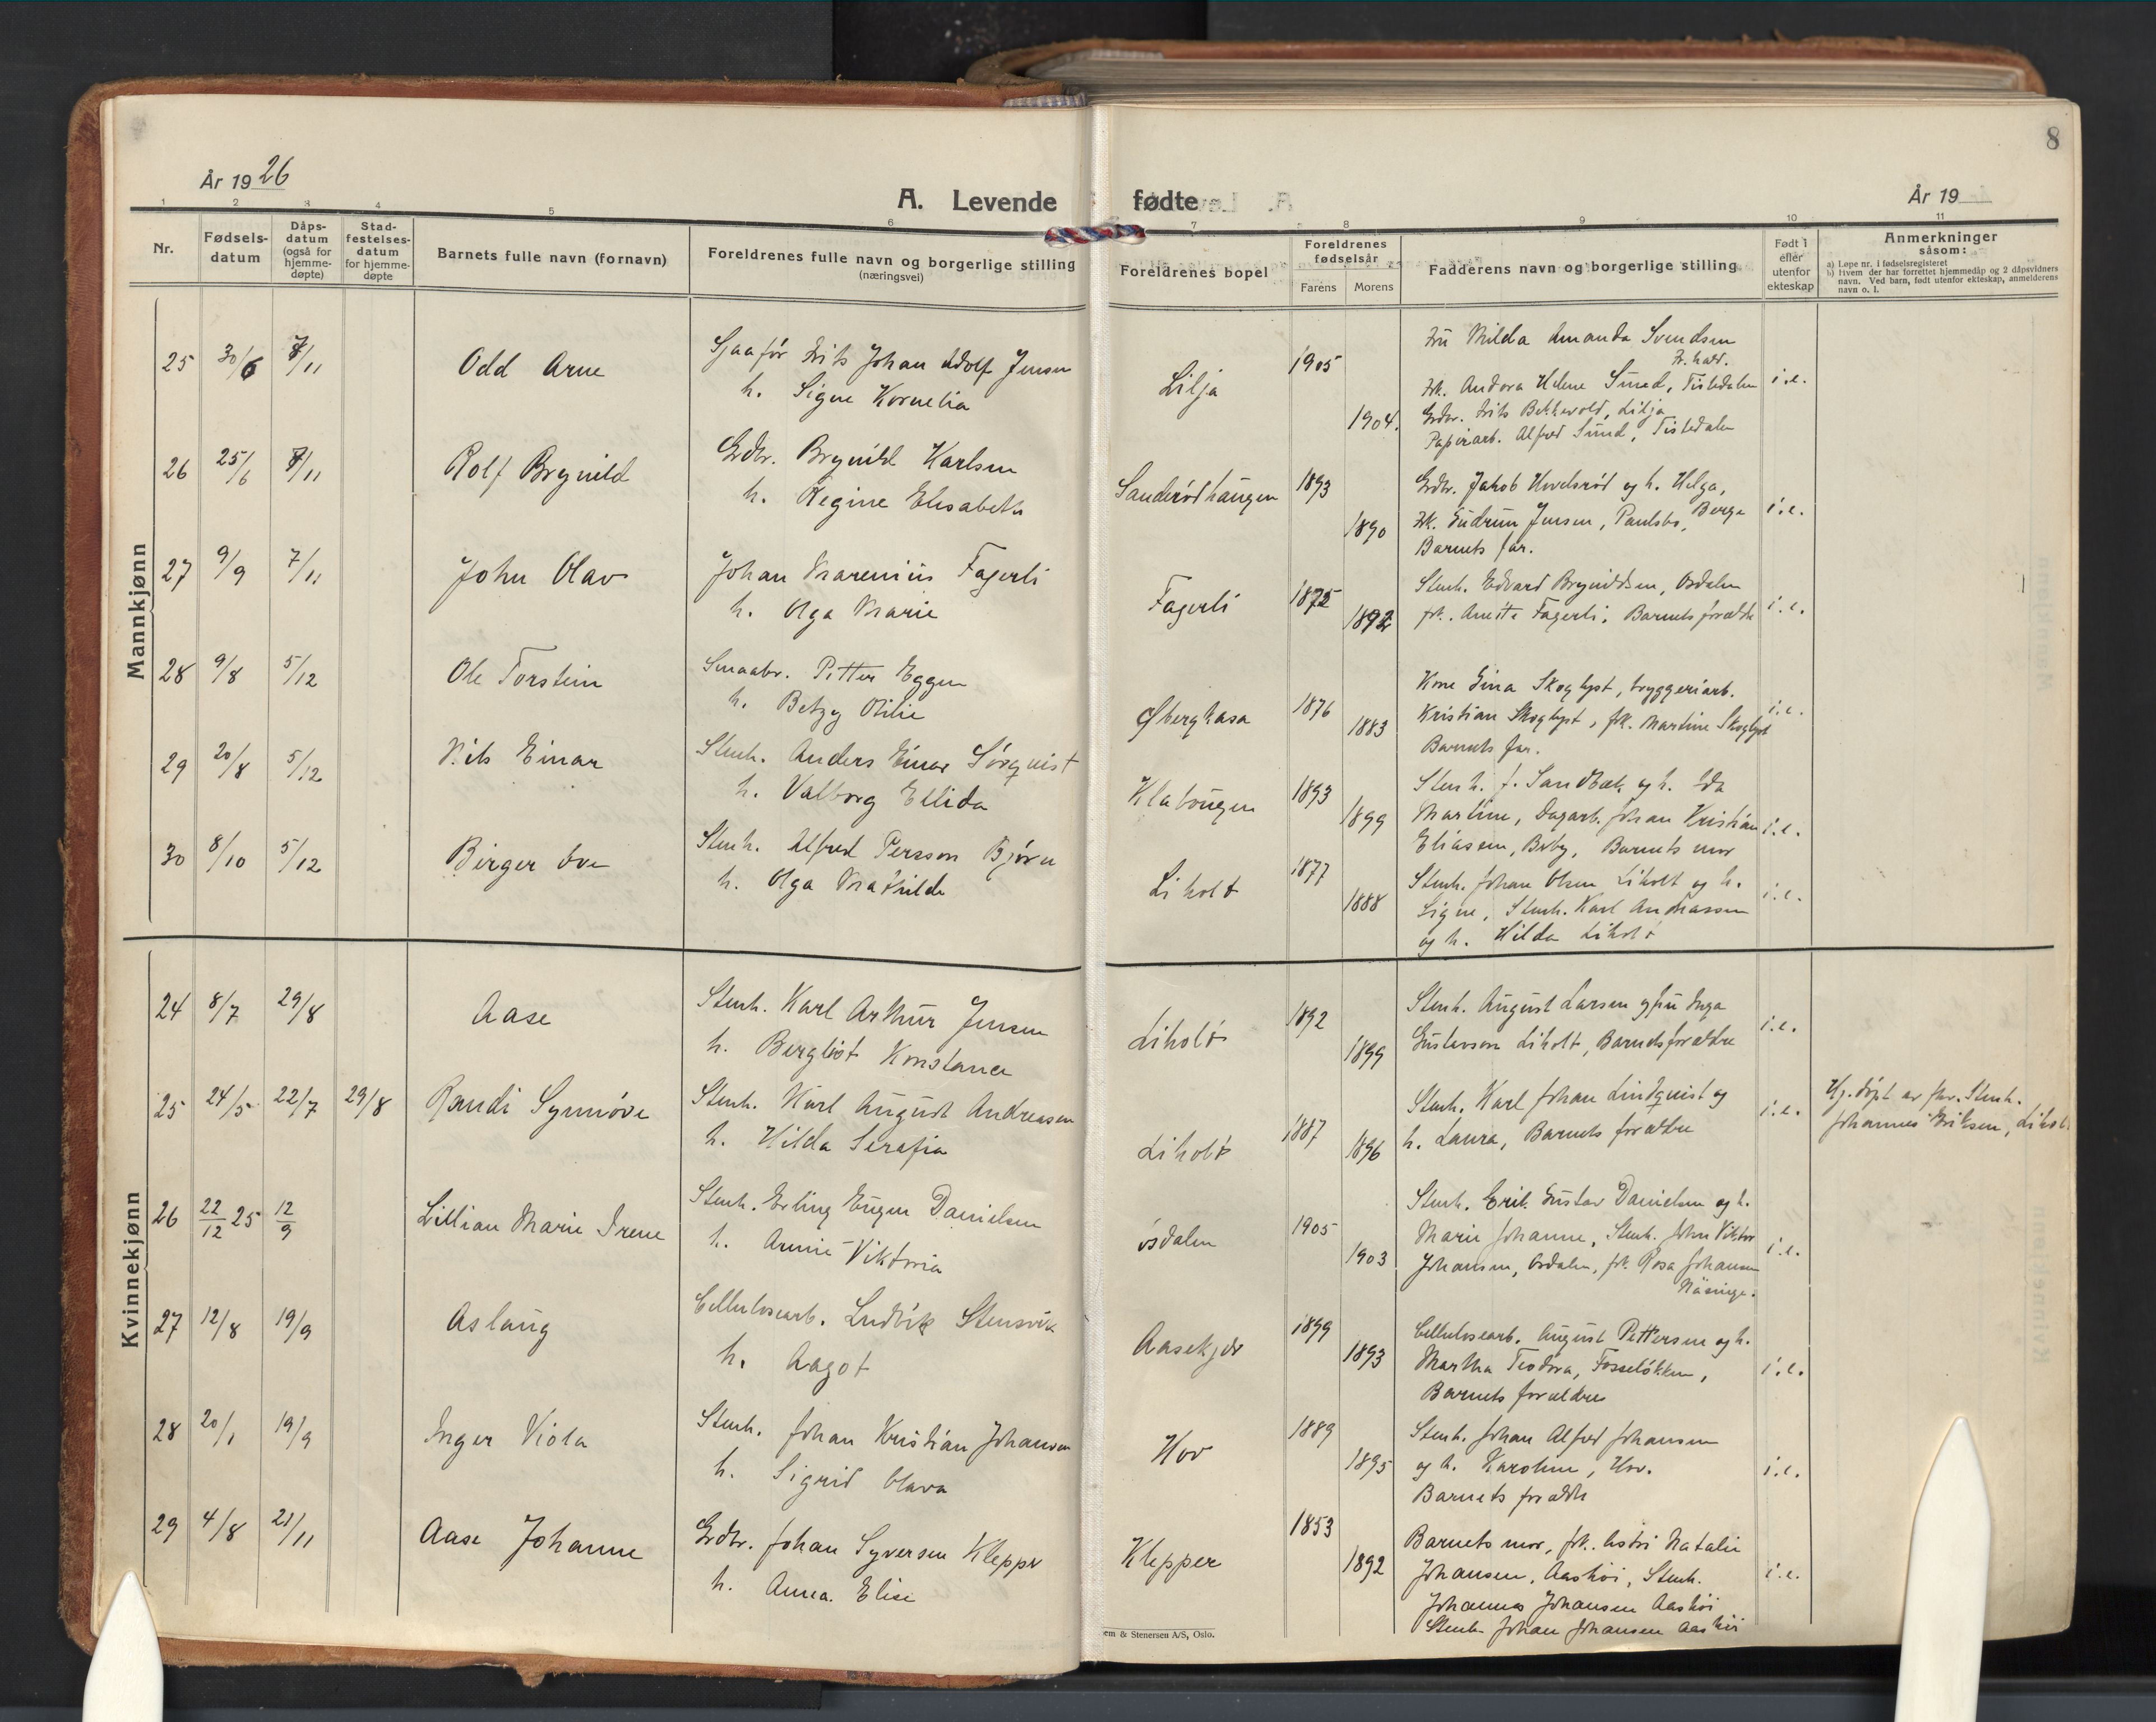 8
År 19 26
A. Levende fødte
År 19
1 2 3 4 5 6 7 8 9 10 11
Nr.
Fødsels-
datum
Dåps-
datum
(også for
hjemme-
døpte)
Stad-
festelses-
datum
for hjemme-
døpte
Barnets fulle navn (fornavn)
Foreldrenes fulle navn og borgerlige stilling
(næringsvei)
Foreldrenes bopel
Foreldrenes
fødselsår
Farens Morens
Fadderens navn og borgerlige stilling
Født i
eller
utenfor
ekteskap
Anmerkninger
såsom:
a) Løpe nr. i fødselsregisteret
b) Hvem der har forrettet hjemmedåp og 2 dåpsvidners
navn. Ved barn, født utenfor ekteskap, anmelderens
navn o. l.
Mannkjønn
25 30/6 7/11 Odd Arne
Sjaafør Frits Johan Adolf Jensen
h. Signe Kornelia
Lilja 1905
1904.
Fru Milda Amanda Svendsen
Fr.hald.
Frk. Andora Helene Smed, Tistedalen
Grdbr. Frits Bekkevold, Lilja
Papirarb. Alfred Smed, Tistedalen
i.e.
26 25/6 7/11 Rolf Brynild
Grdbr. Brynild Karlsen
h. Regine Elisabeth
Sanderødhaugen 1893
1890
Grdbr. Jakob Hovelsrød og h. Helga,
Berge
Frk. Gudrun Jensen, Paulsbo,
Barnets far.
i.e.
27 9/9 7/11 John Olav
Johan Marenius Fagerli
h. Olga Marie
Fagerli 1875
1892
Stenh. Edvard Brynildsen, Osdalen
frk. Anetta Fagerli, Barnets forældre
i.e.
28 9/8 5/12 Ole Torstein
Smaabr. Pitter Eggen
h. Betzy Otilie
Øberghasa 1876
1883
Kone Gina Skoglyst, bryggeriarb.
Kristian Skoglyst, frk. Martine Skoglyst
Barnets far.
i.e.
29 20/8 5/12 Nils Einar
Stenh. Anders Einar Sörquist
h. Valborg Ellida
Klatougen 1893
1899
Stenh. J. Sandbæk og h. Ida
Martine, Dagarb. Johan Kristian
Eliassen, Berby, Barnets mor
i.e.
30 8/10 5/12 Birger Ove
Stenh. Alfred Persson Bjørn
h. Olga Mathilde
Liholt 1877
1888
Stenh. Johan Olsen Liholt og h.
Signe, Stenh. Karl Andreassen
og h. Hilda Liholt
i.e.
Kvinnekjønn
24 8/7 29/8 Aase
Stenh. Karl Arthur Jensen
h. Bergliot Konstance
Liholt 1892
1899
Stenh. August Larsen og fru Inga
Gustavson Liholt, Barnets forældre
i.e.
25 24/5 22/7 29/8 Randi Synnøve
Stenh. Karl August Andreassen
h. Hilda Serafia
Liholt 1887
1896
Stenh. Karl Johan Lindquist og
h. Laura, Barnets forældre
i.e.
Hj.døpt av fhv. Stenh.
Johannes Eriksen, Liholt
26 22/12 25 12/9 Lillian Marie Irene
Stenh. Erling Eugen Danielsen
h. Annie Viktoria
Osdalen 1905
1903
Stenh. Erik Gustav Danielsen og h.
Marie Johanne, Stenh. John Viktor
Johansen, Osdalen, frk. Rosa Johansen
Näsinge.
i.e.
27 12/8 19/9 Aslaug
Cellulosearb. Ludvik Stensvik
h. Aagot
Aasekjær 1899
1893
Cellulosearb. August Pettersen og h.
Martha Teodora, Fosseløkken,
Barnets forældre
i.e.
28 20/1 19/9 Inger Viola
Stenh. Johan Kristian Johansen
h. Sigrid Olava
Hov 1889
1895
Stenh. Johan Alfred Johansen
og h. Karoline, Hov.
Barnets forældre
i.e.
29 4/8 21/11 Aase Johanne
Grdbr. Johan Syversen Klepper
h. Anna Elise
Klepper 1853
1892
Barnets mor, frk. Astri Natalie
Johansen, Aashøi, Stenh.
Johannes Johansen Aashøi
Stenh. Johan Johansen Aashøi
i.e.
em & Stenersen A/S, Oslo.